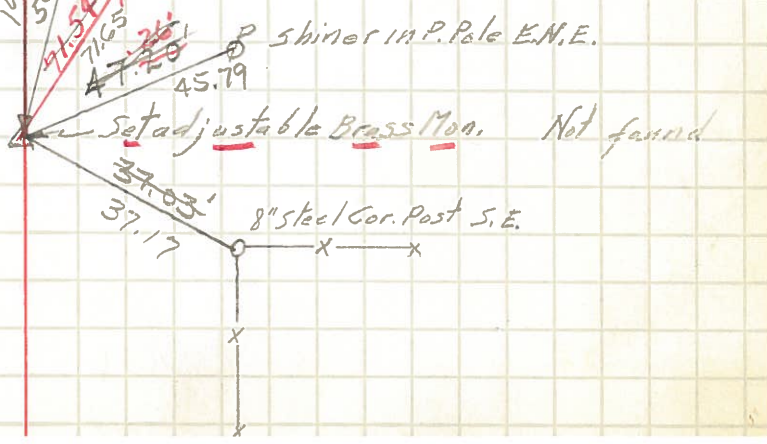 71.54
71.65
P shiner in P. Pole E.N.E.
45.79
Set adjustable Brass Mon. Not found
37.03'
37.17
8" Steel Cor. Post S.E.